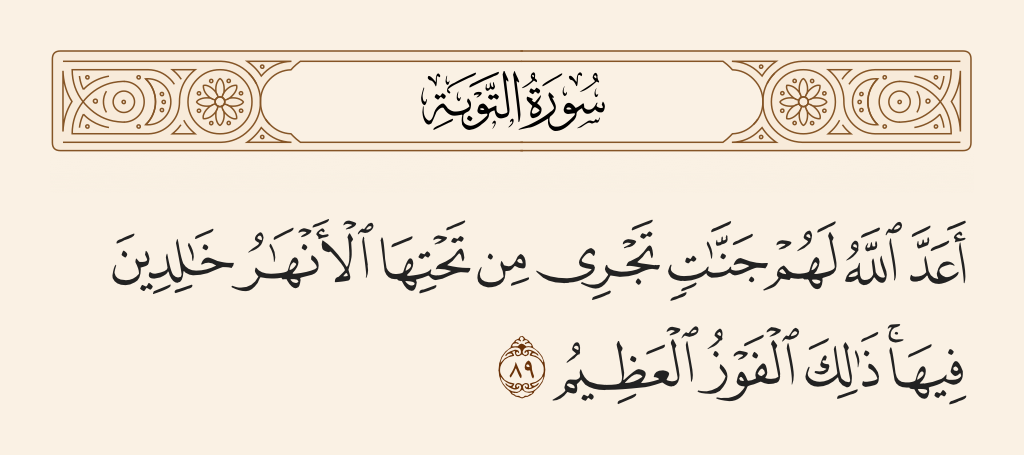 سُورَةُ التَّوْبَةِ
أَعَدَّ ٱللَّهُ لَهُمْ جَنَّـٰتٍ تَجْرِى مِن تَحْتِهَا ٱلْأَنْهَـٰرُ خَـٰلِدِينَ
فِيهَا ۚ ذَٰلِكَ ٱلْفَوْزُ ٱلْعَظِيمُ ٨٩